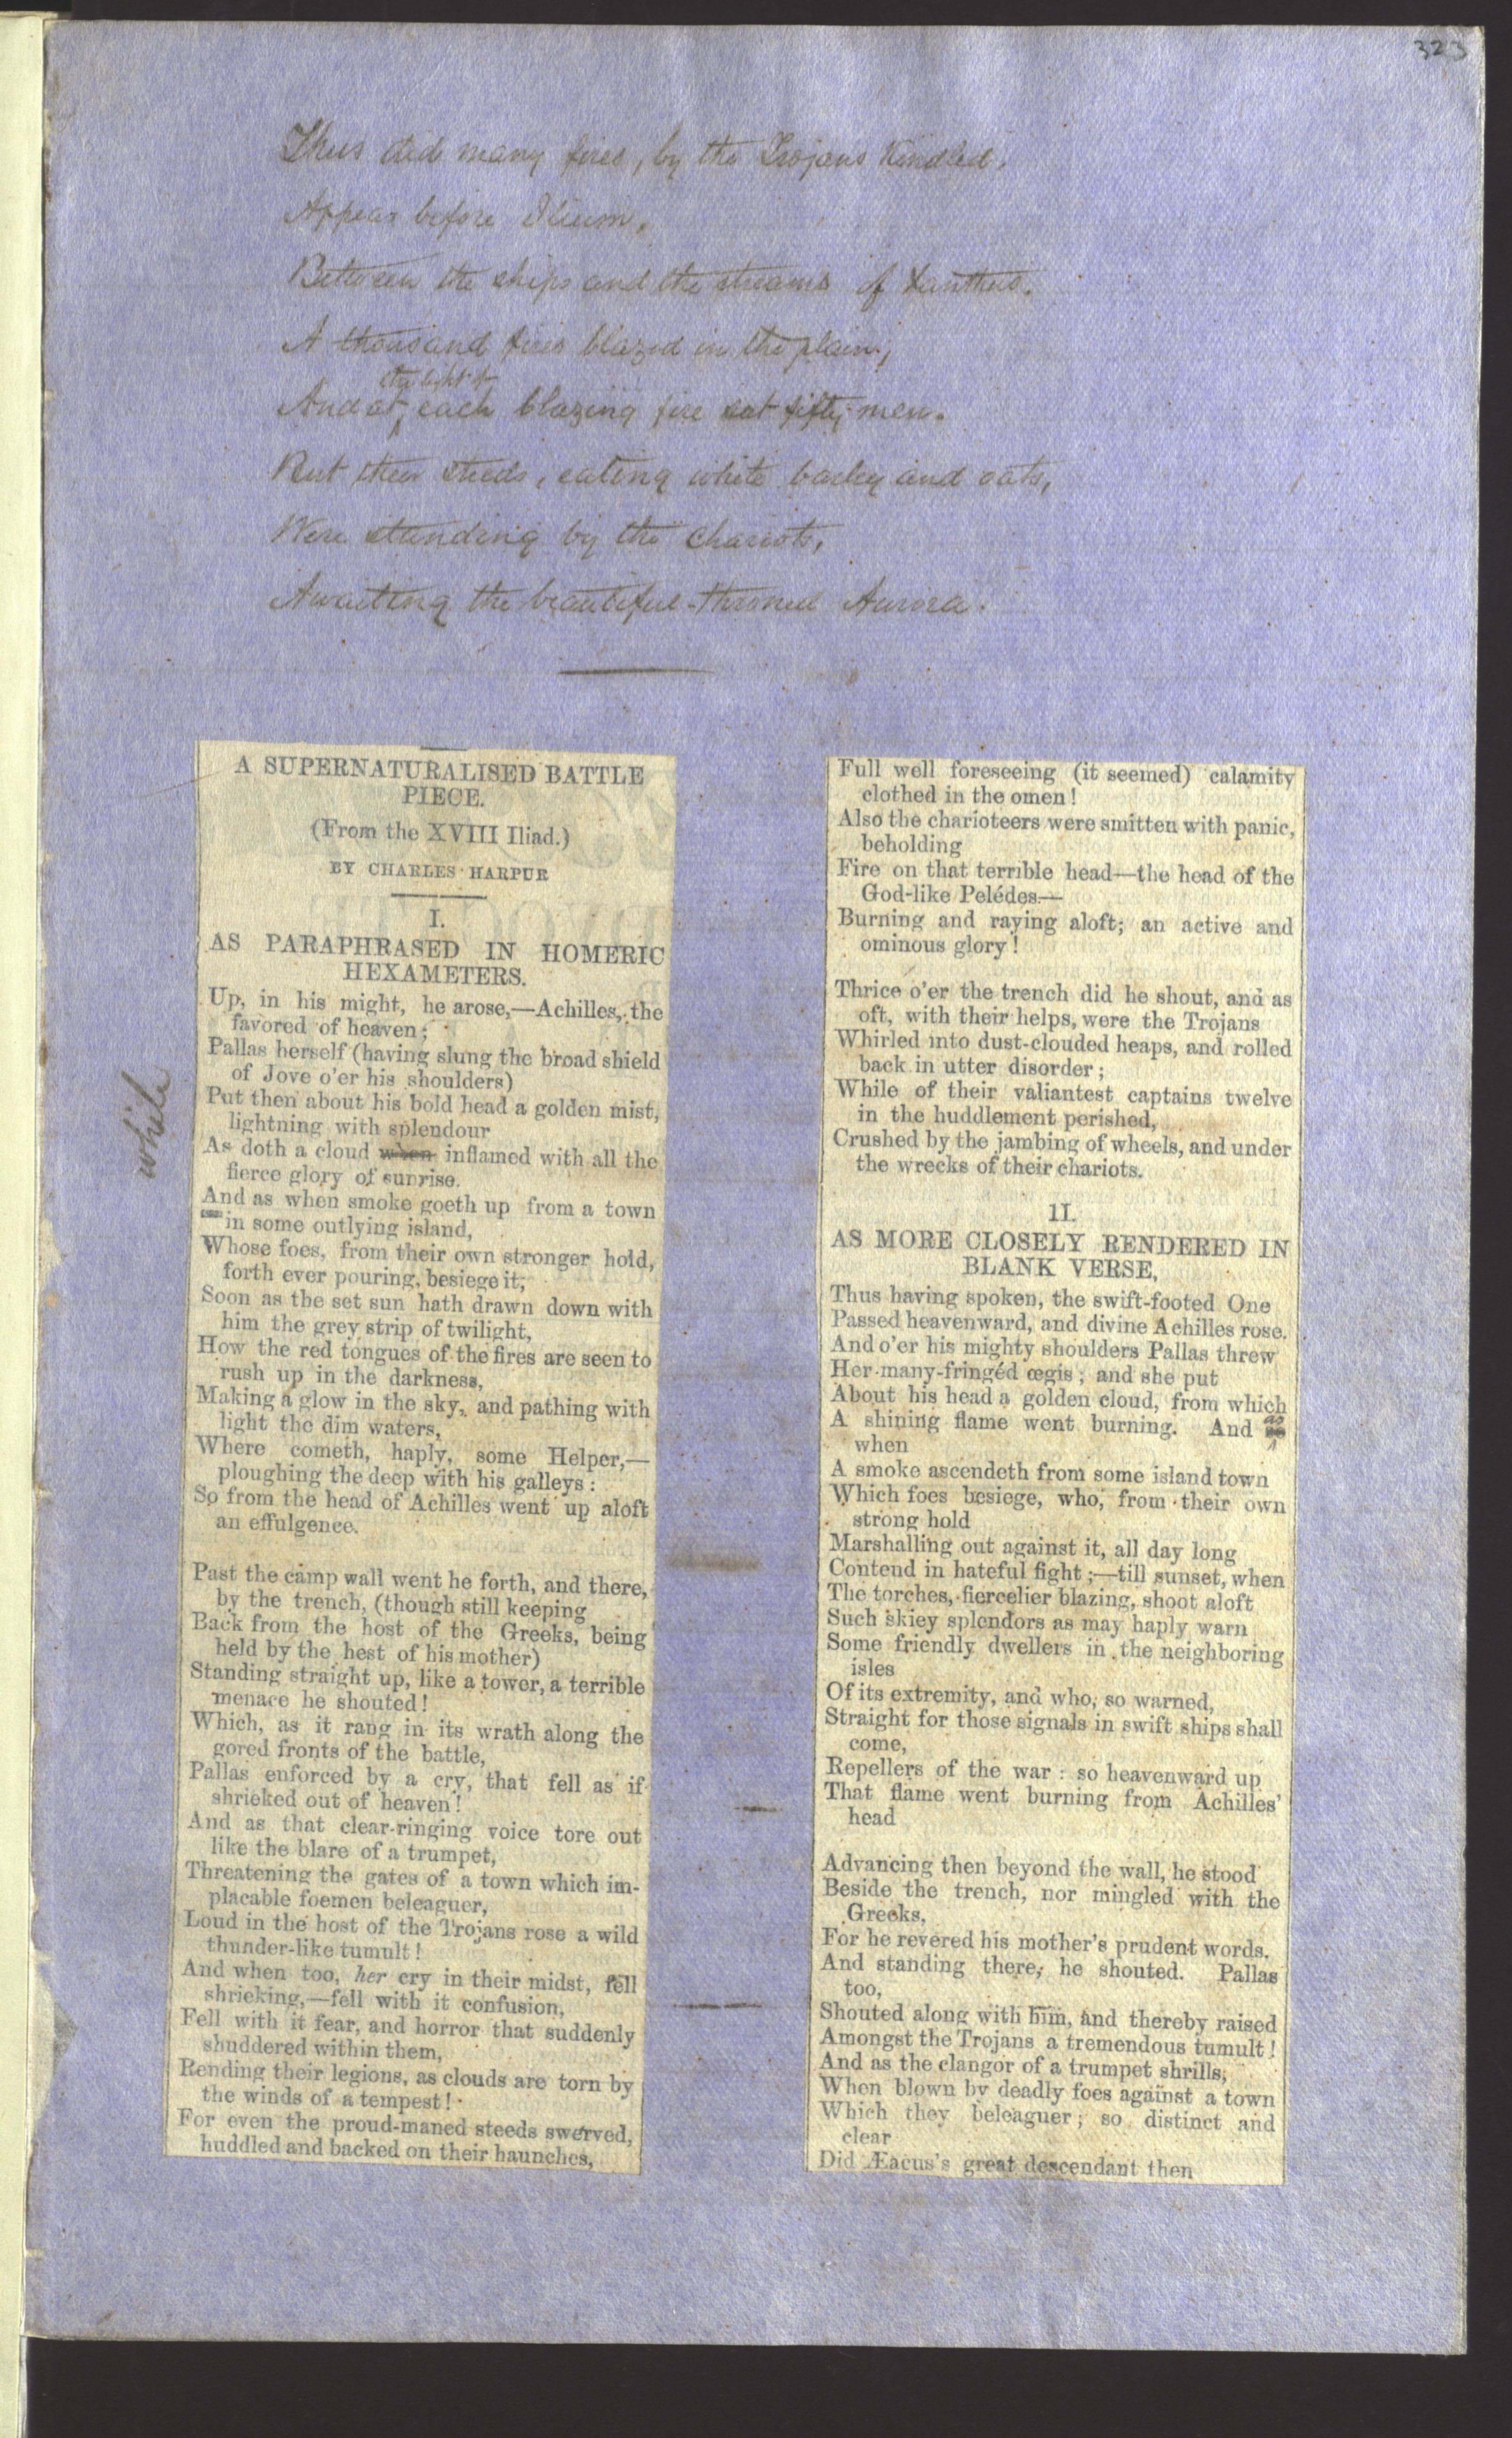 323
Thus did many fires, by the Trojans kindled,
Appear before Ilium,
Between the ships and the streams of Xanthus.
A thousand fires blazed in the plain;
the light of
And at each blazing fire sat fifty men.
But their steeds, eating white barley and oats,
Were standing by the chariots,
Awaiting the beautiful-throned Aurora.
A SUPERNATURALISED BATTLE
PIECE.
(From the XVIII Iliad.)
BY CHARLES HARPUR
I.
AS PARAPHRASED IN HOMERIC
HEXAMETERS.
Up, in his might, he arose,—Achilles, the
favored of heaven;
Pallas herself (having slung the broad shield
of Jove o'er his shoulders)
Put then about his bold head a golden mist,
lightning with splendour
while
As doth a cloud when inflamed with all the
fierce glory of sunrise.
And as when smoke goeth up from a town
in some outlying island,
Whose foes, from their own stronger hold,
forth ever pouring, besiege it;
Soon as the set sun hath drawn down with
him the grey strip of twilight,
How the red tongues of the fires are seen to
rush up in the darkness,
Making a glow in the sky, and pathing with
light the dim waters,
Where cometh, haply, some Helper,—
ploughing the deep with his galleys:
So from the head of Achilles went up aloft
an effulgence.
Past the camp wall went he forth, and there,
by the trench, (though still keeping
Back from the host of the Greeks, being
held by the hest of his mother)
Standing straight up, like a tower, a terrible
menace he shouted!
Which, as it rang in its wrath along the
gored fronts of the battle,
Pallas enforced by a cry, that fell as if
shrieked out of heaven!
And as that clear-ringing voice tore out
like the blare of a trumpet,
Threatening the gates of a town which im-
placable foemen beleaguer,
Loud in the host of the Trojans rose a wild
thunder-like tumult!
And when too, her cry in their midst, fell
shrieking,—fell with it confusion,
Fell with it fear, and horror that suddenly
shuddered within them,
Rending their legions, as clouds are torn by
the winds of a tempest!
For even the proud-maned steeds swerved,
huddled and backed on their haunches,
Full well foreseeing (it seemed) calamity
clothed in the omen!
Also the charioteers were smitten with panic,
beholding
Fire on that terrible head—the head of the
God-like Pelédes—
Burning and raying aloft; an active and
ominous glory!
Thrice o'er the trench did he shout, and as
oft, with their helps, were the Trojans
Whirled into dust-clouded heaps, and rolled
back in utter disorder;
While of their valiantest captains twelve
in the huddlement perished,
Crushed by the jambing of wheels, and under
the wrecks of their chariots.
II.
AS MORE CLOSELY RENDERED IN
BLANK VERSE,
Thus having spoken, the swift-footed One
Passed heavenward, and divine Achilles rose.
And o'er his mighty shoulders Pallas threw
Her many-fringéd œgis; and she put
About his head a golden cloud, from which
A shining flame went burning. And as
when
A smoke ascendeth from some island town
Which foes besiege, who, from their own
strong hold
Marshalling out against it, all day long
Contend in hateful fight;—till sunset, when
The torches, fiercelier blazing, shoot aloft
Such skiey splendors as may haply warn
Some friendly dwellers in the neighboring
isles
Of its extremity, and who, so warned,
Straight for those signals in swift ships shall
come,
Repellers of the war: so heavenward up
That flame went burning from Achilles'
head
Advancing then beyond the wall, he stood
Beside the trench, nor mingled with the
Greeks,
For he revered his mother's prudent words.
And standing there, he shouted. Pallas
too,
Shouted along with him, and thereby raised
Amongst the Trojans a tremendous tumult!
And as the clangor of a trumpet shrills,
When blown by deadly foes against a town
Which they beleaguer; so distinct and
clear
Did Æacus's great descendant then